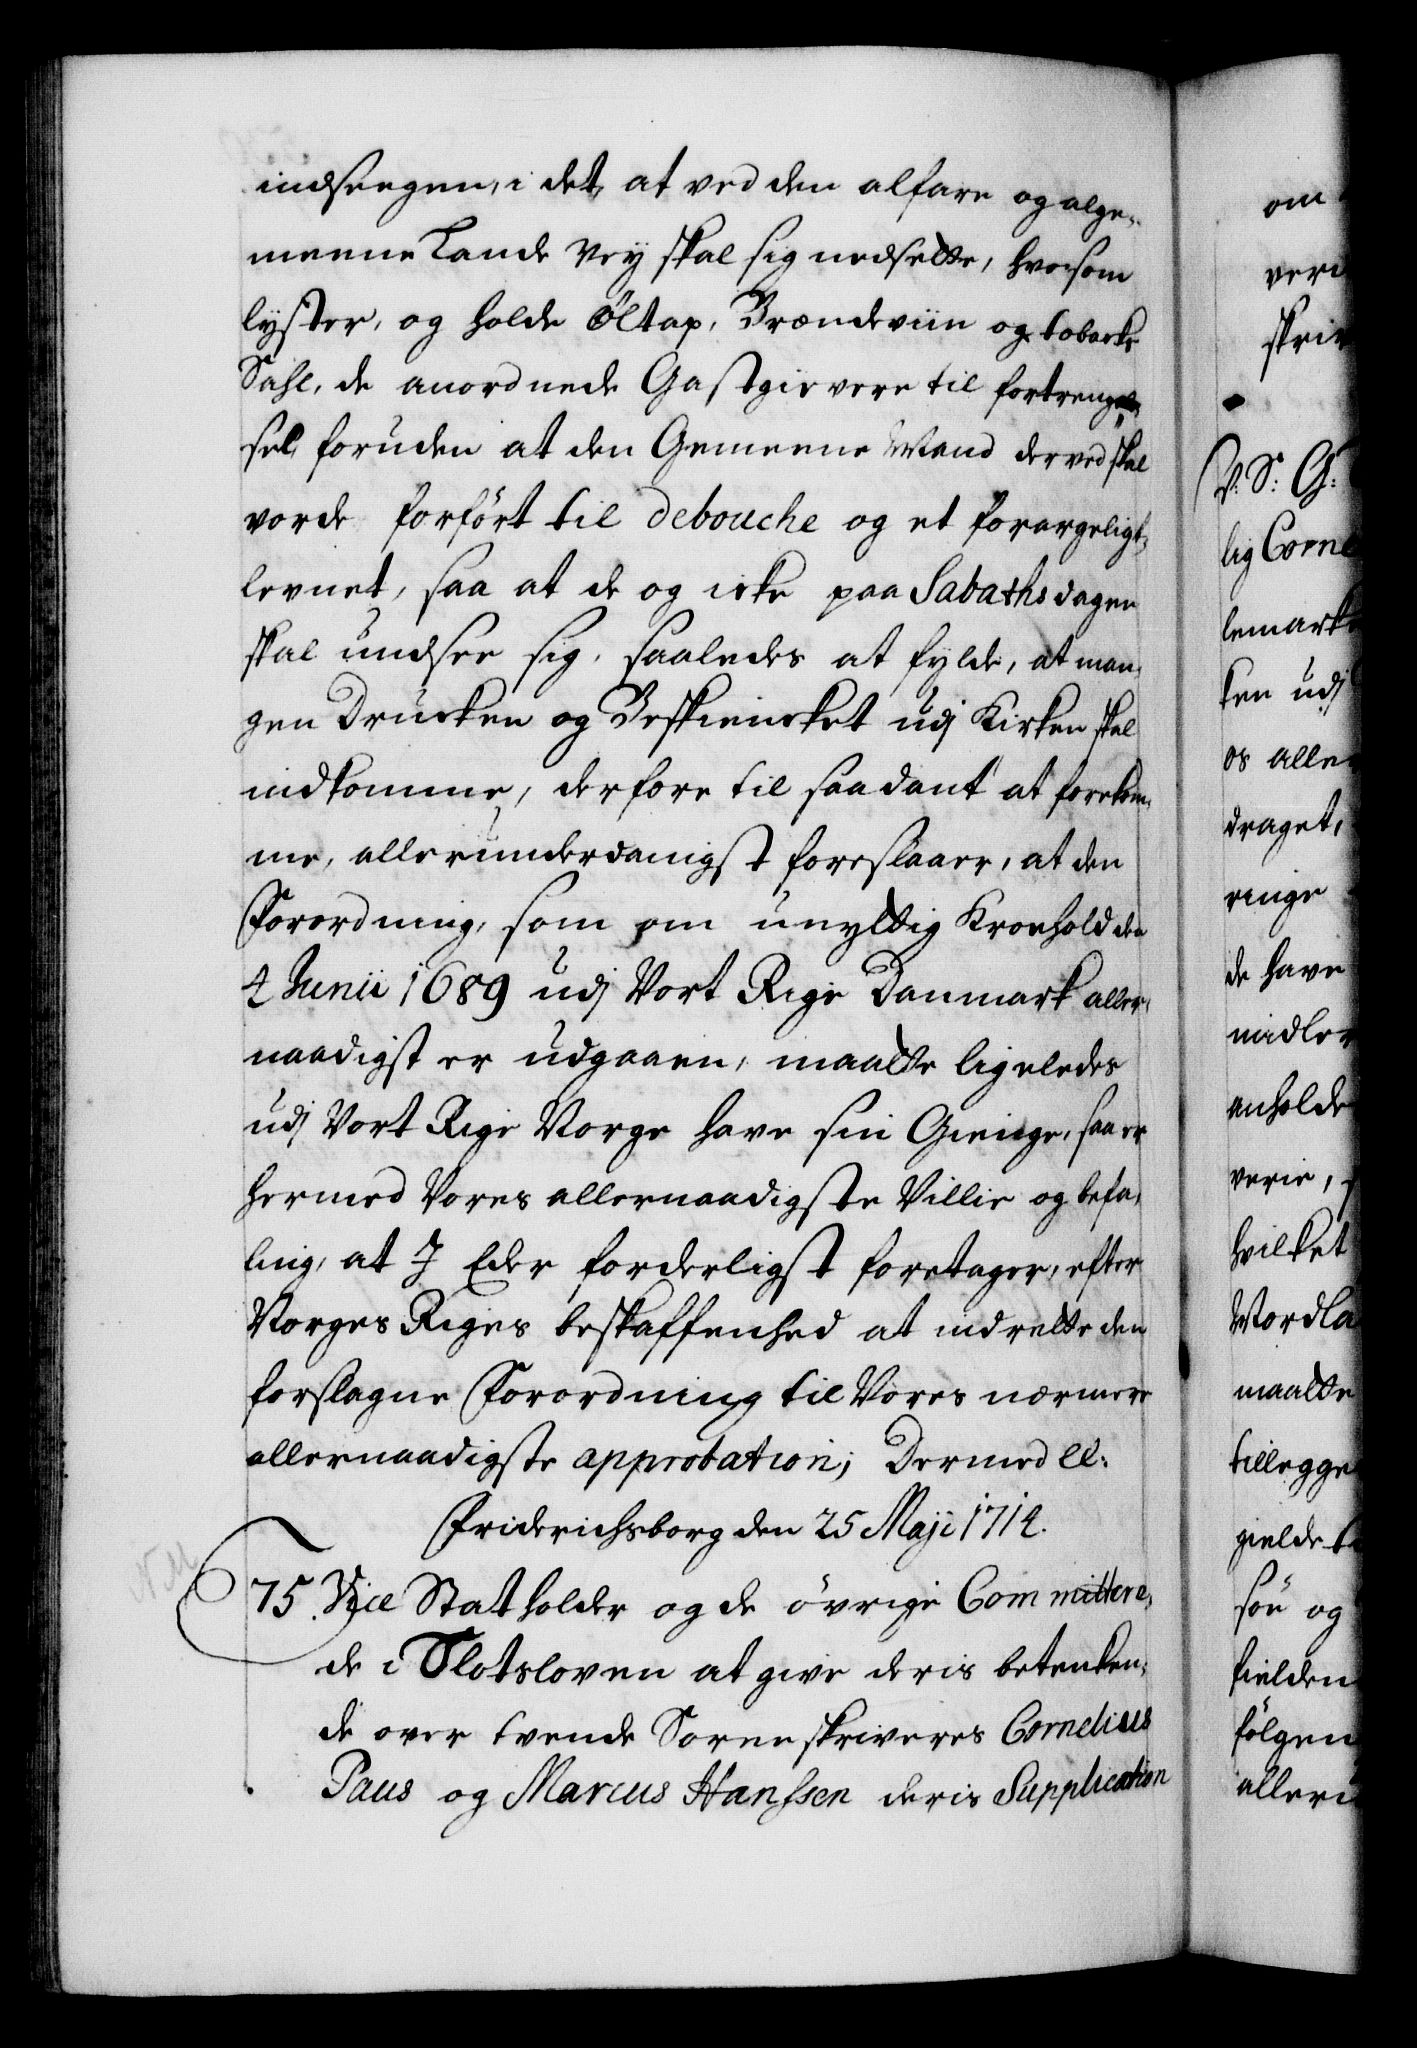 indseegen, i det, at ved den alfare og alge-
meene Lande Vey skal sig nedsette, hvosom
lyster, og holde Øltap, Brændeviin og tobacks
Sahl, de anordnede Gastgievere til fortrengel-
sel, foruden at den Gemeene Mand derved skal
vorde forført til debouche og et forargeligt
levnet, saa at de og icke paa Sabathsdagen
skal undsee sig, saaledes at fylde, at man-
gen Drucken og Beskiencket udj Kirken skal
indkomme, derfore til saadant at forekom-
me, allerunderdanigst foreslaaer, at den
Forordning, som om unyttig Kroehold den
4 Junii 1689 udj Vort Rige Danmark aller-
naadigst er udgaaen, maatte ligeledes
udj Vort Rige Norge have sin Gienge, saa er
hermed Vores allernaadigste Villie og befa-
ling, at I Eder forderligst foretager, efter
Norges Riges beskaffenhed at indrette den
forslagne Forordning til Vores nærmere
allernaadigste approbation; Dermed ec:
Friderichsborg den 25 Maji 1714.
75. Vice Statholder og de øvrige Committere-
de i Slotsloven at give deris betenken-
de over tvende Sorenskriveres Cornelius
Paus og Marcus Hanssen deris Supplication
om
veri
skriv
V. S: G:
lig Corne
lemark
ken udj
os alle
draget,
ringe
de have
midler
anholde
verie,
hvilket
Nordla
maatte
tillegge
gielde
søn og
fielden
følgen
alleru